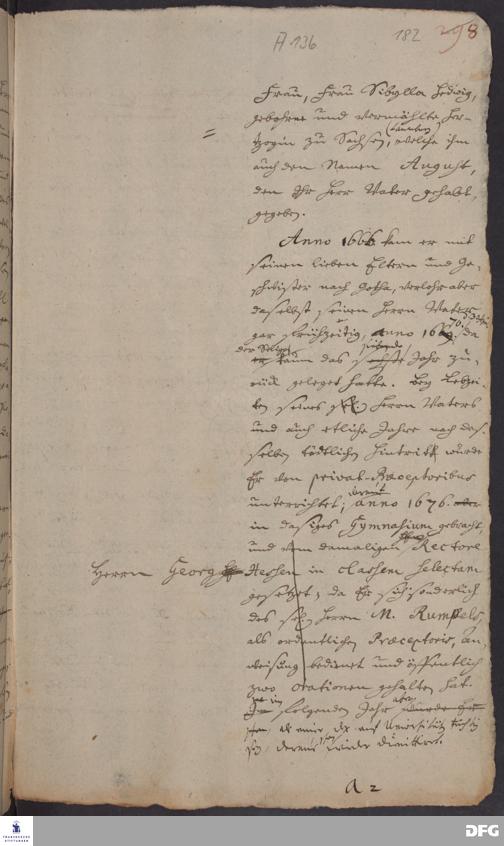 A 136
182
298
Frau, Frau Sibylla Hedwig,
gebohrne und vermählte Her-
tzogin zu Sachsen, welche ihm
auch den Namen August,
den Ihr Herr Vater gehabt,
gegeben.
Anno 1666 kam er mit
seinen lieben Eltern und Ge-
schwister nach Gotha, verlohr aber
daselbst seinen Herrn Vater
gar frühzeitig, anno 1670. da
kaum das Jahr zu-
rück geleget hatte. Bey Lebzei-
ten seines Herrn Vaters
und auch etliche Jahre nach des-
selben tödtlichen Hintritt wurde
Er von privat-Præceptoribus
unterrichtet; anno 1676.
in dasiges Gymnasium gebracht,
und dem damaligen Rectore
Herrn Georg Hessen in classem selectam
gesetzet, da Er sich sonderlich
des Herrn M. Rumpels,
als ordentlichen Præceptoris, An-
weisung bedienet und öffentlich
zwo orationen gehalten hat.
folgenden Jahr
auf Universität
wieder dimittiret.
A 2
FRANCKESCHE STIFTUNGEN
DFG